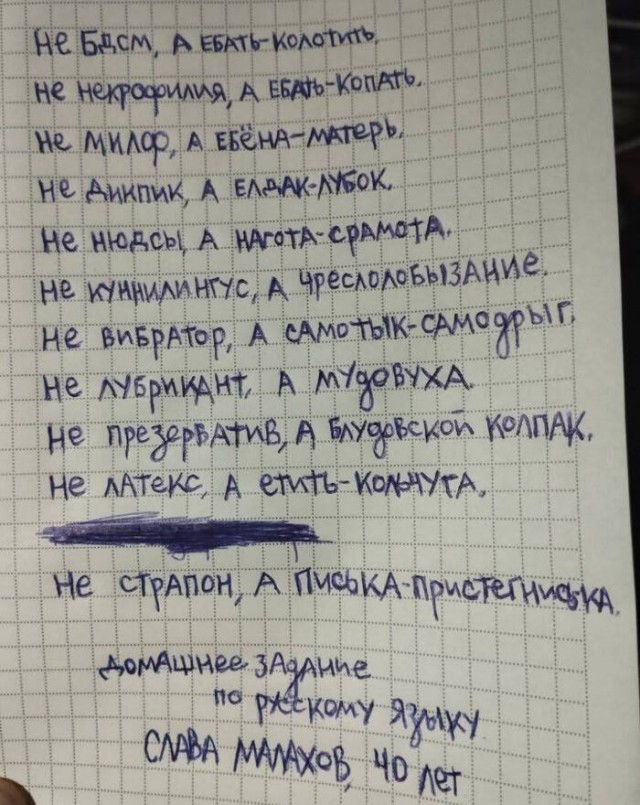 не БДСМ, А ЕБАТЬ-КОЛОТИТЬ.
не некрофилия, А ЕБАТЬ-КОПАТЬ.
не МИЛФ, А ЕБЁНА-МАТЕРЬ.
не дикпик, А ЕЛДАК-ЛУБОК.
не нюдсы, А НАГОТА-СРАМОТА.
не куннилингус, А Чреслолобызание.
не вибратор, А самотык-самодрыг.
не лубрикант, А мудовуха.
не презерватив, А блудовской колпак.
не латекс, А етить-кольчуга.
не страпон, А писька-пристегниська.
домашнее задание
по русскому языку
СЛАВА МАЛАХОВ, 40 лет